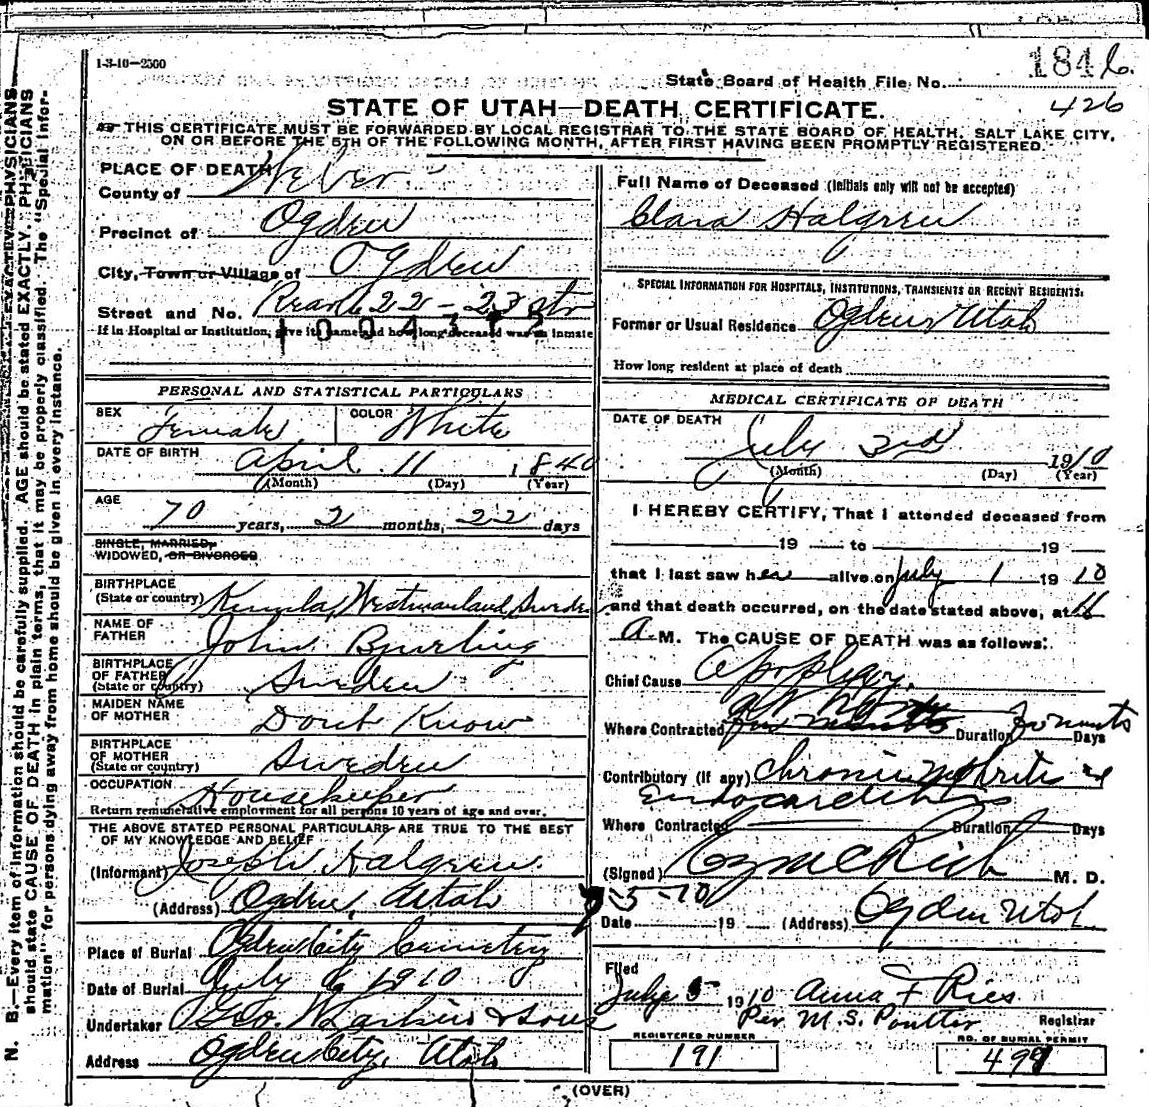 1-3-10-2500
State Board of Health File No. 1846.
426
STATE OF UTAH—DEATH CERTIFICATE.
THIS CERTIFICATE MUST BE FORWARDED BY LOCAL REGISTRAR TO THE STATE BOARD OF HEALTH, SALT LAKE CITY,
ON OR BEFORE THE 5TH OF THE FOLLOWING MONTH, AFTER FIRST HAVING BEEN PROMPTLY REGISTERED.
N. B.—Every item of information should be carefully supplied. AGE should be stated EXACTLY. PHYSICIANS
should state CAUSE OF DEATH in plain terms, that it may be properly classified. The "Special Infor-
mation" for persons dying away from home should be given in every instance.
PLACE OF DEATH
County of Weber
Precinct of Ogden
City, Town or Village of Ogden
Street and No. 22 - 23 sts
If in Hospital or Institution, give its name and how long deceased was an inmate
PERSONAL AND STATISTICAL PARTICULARS
SEX Female COLOR White
DATE OF BIRTH April 11 1840
(Month) (Day) (Year)
AGE
70 years, 2 months, 22 days
SINGLE, MARRIED,
WIDOWED, OR DIVORCED
BIRTHPLACE
(State or country) Westmanland, Sweden
NAME OF
FATHER John Bjurling
BIRTHPLACE
OF FATHER
(State or country) Sweden
MAIDEN NAME
OF MOTHER Dont Know
BIRTHPLACE
OF MOTHER
(State or country) Sweden
OCCUPATION Housekeeper
Return remunerative employment for all persons 10 years of age and over.
THE ABOVE STATED PERSONAL PARTICULARS ARE TRUE TO THE BEST
OF MY KNOWLEDGE AND BELIEF
(Informant) Joseph Halgren
(Address) Ogden, Utah
Place of Burial Ogden City Cemetery
Date of Burial July 6 1910
Undertaker Geo. W. Larkin & Sons
Address Ogden City, Utah
Full Name of Deceased (Initials only will not be accepted)
Clara Halgren
SPECIAL INFORMATION FOR HOSPITALS, INSTITUTIONS, TRANSIENTS OR RECENT RESIDENTS:
Former or Usual Residence Ogden Utah
How long resident at place of death
MEDICAL CERTIFICATE OF DEATH
DATE OF DEATH
July 3rd 1910
(Month) (Day) (Year)
I HEREBY CERTIFY, That I attended deceased from
19 to 19
that I last saw her alive on July 1 1910
and that death occurred, on the date stated above, at 11
A. M. The CAUSE OF DEATH was as follows:
Chief Cause Apoplexy,
Where Contracted Duration Days
Contributory (if any) Chronic nephritis &
Endocarditis
Where Contracted Duration Days
(Signed) Rich M. D.
7-5-10
Date 19 (Address) Ogden Utah
Filed
July 5 1910 Anna F Ries
Per M. S. Poulter Registrar
REGISTERED NUMBER
191
NO. OF BURIAL PERMIT
(OVER)